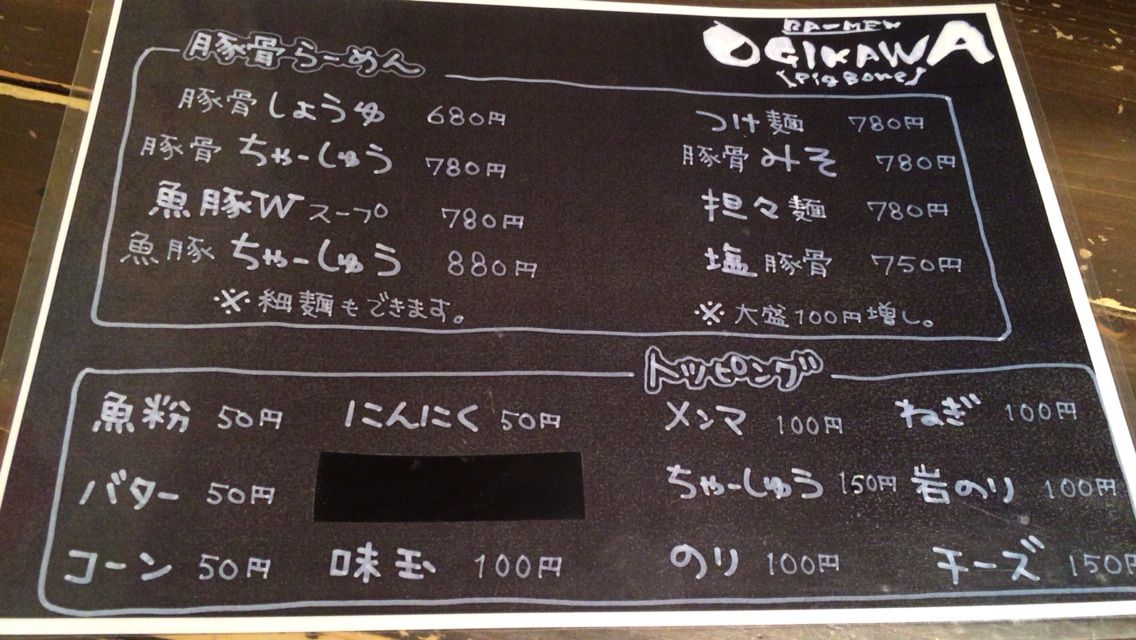 RA-MEN
OGIKAWA
[PigBone]
豚骨らーめん
豚骨しょうゆ 680円
豚骨ちゃーしゅう 780円
魚豚Wスープ 780円
魚豚ちゃーしゅう 880円
※細麺もできます。
つけ麺 780円
豚骨みそ 780円
担々麺 780円
塩豚骨 750円
※大盛100円増し。
トッピング
魚粉 50円 にんにく 50円 メンマ 100円 ねぎ 100円
バター 50円 ちゃーしゅう 150円 岩のり 100円
コーン 50円 味玉 100円 のり 100円 チーズ 150円